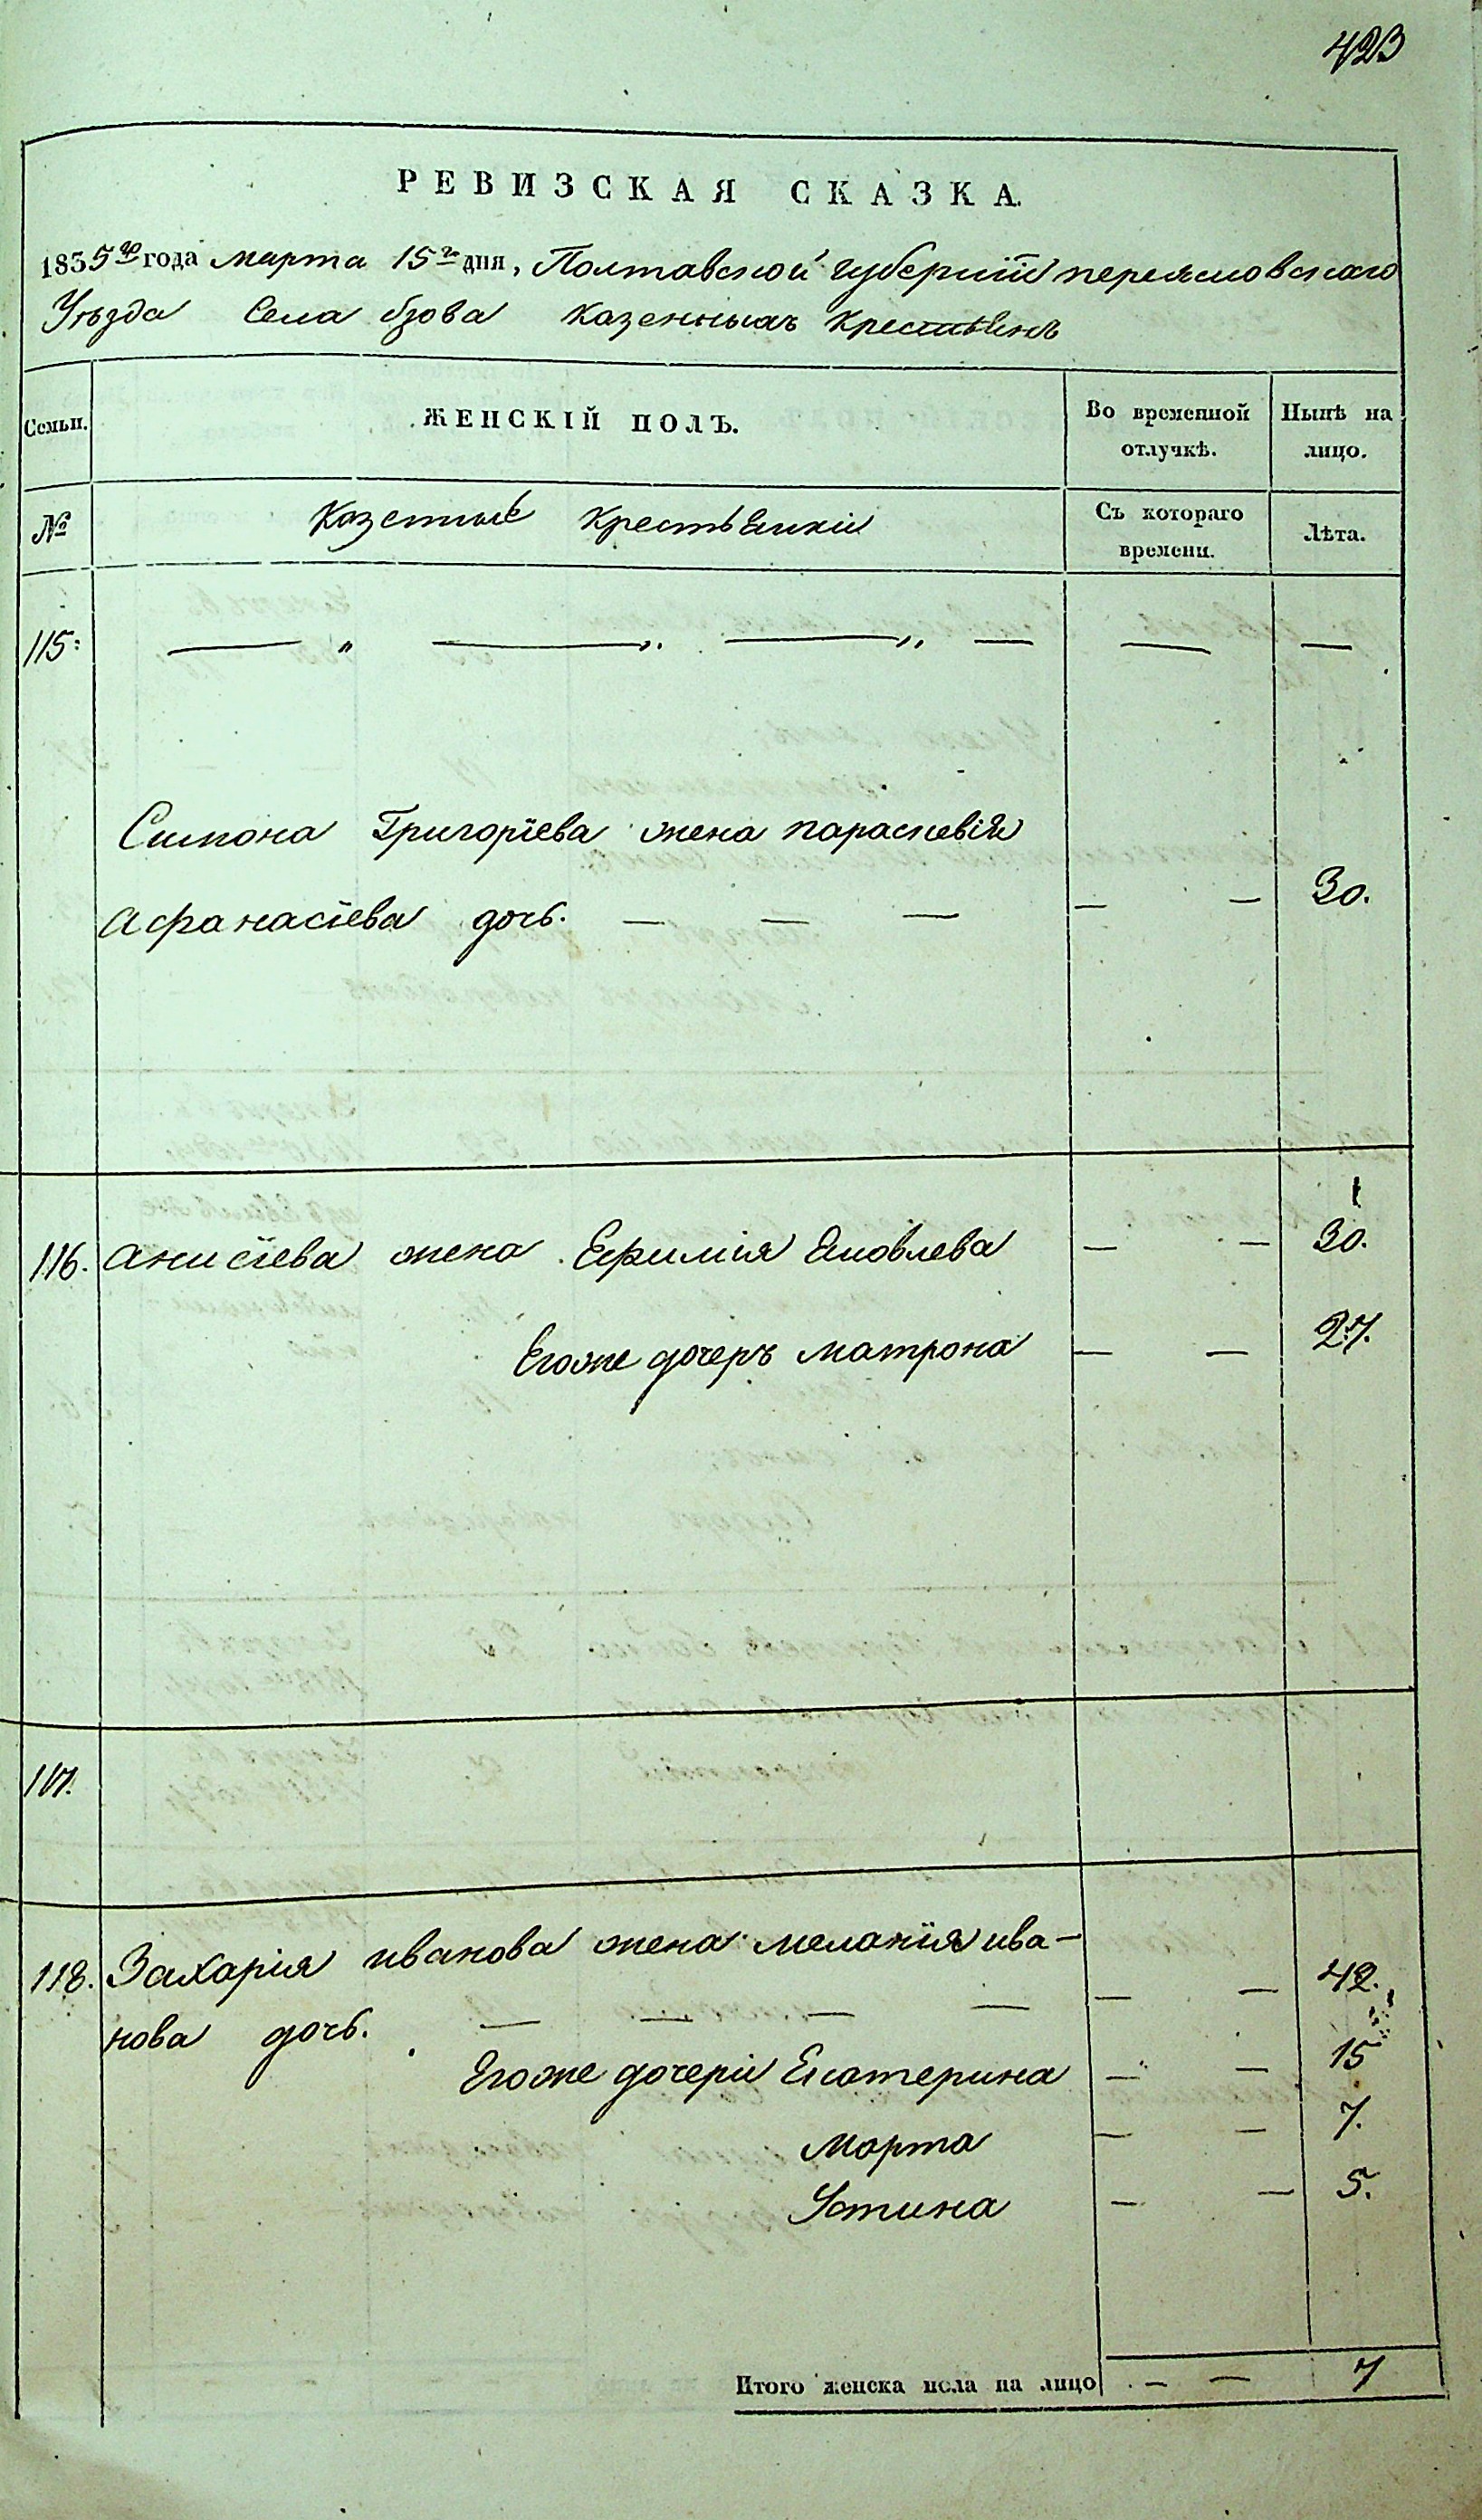 423
РЕВИЗСКАЯ СКАЗКА.
1835го года марта 15го дня, Полтавской губернїи переясловскаго
Уѣзда Села бзова казенныхъ крестьянъ
Семьи. ЖЕНСКІЙ ПОЛЪ. Во временной отлучкѣ. Нынѣ на лицо.
№ Казенные крестьянки Съ котораго времени. Лѣта.
115: — „ — „ — „ — — —
Симона Григорїева жена параскевія
Афанасїева дочь. — — — — — 30.
116. Анисїева жена Ефимия Яковлева — — 30.
Егоже дочерь матрона — — 27.
117.
118. Захарія иванова жена меланїя ива-
нова дочь. — — — — — — 42.
Егоже дочери Екатерина — — 15
Марта — — 7.
Устина — — 5.
Итого женска пола на лицо — — 7